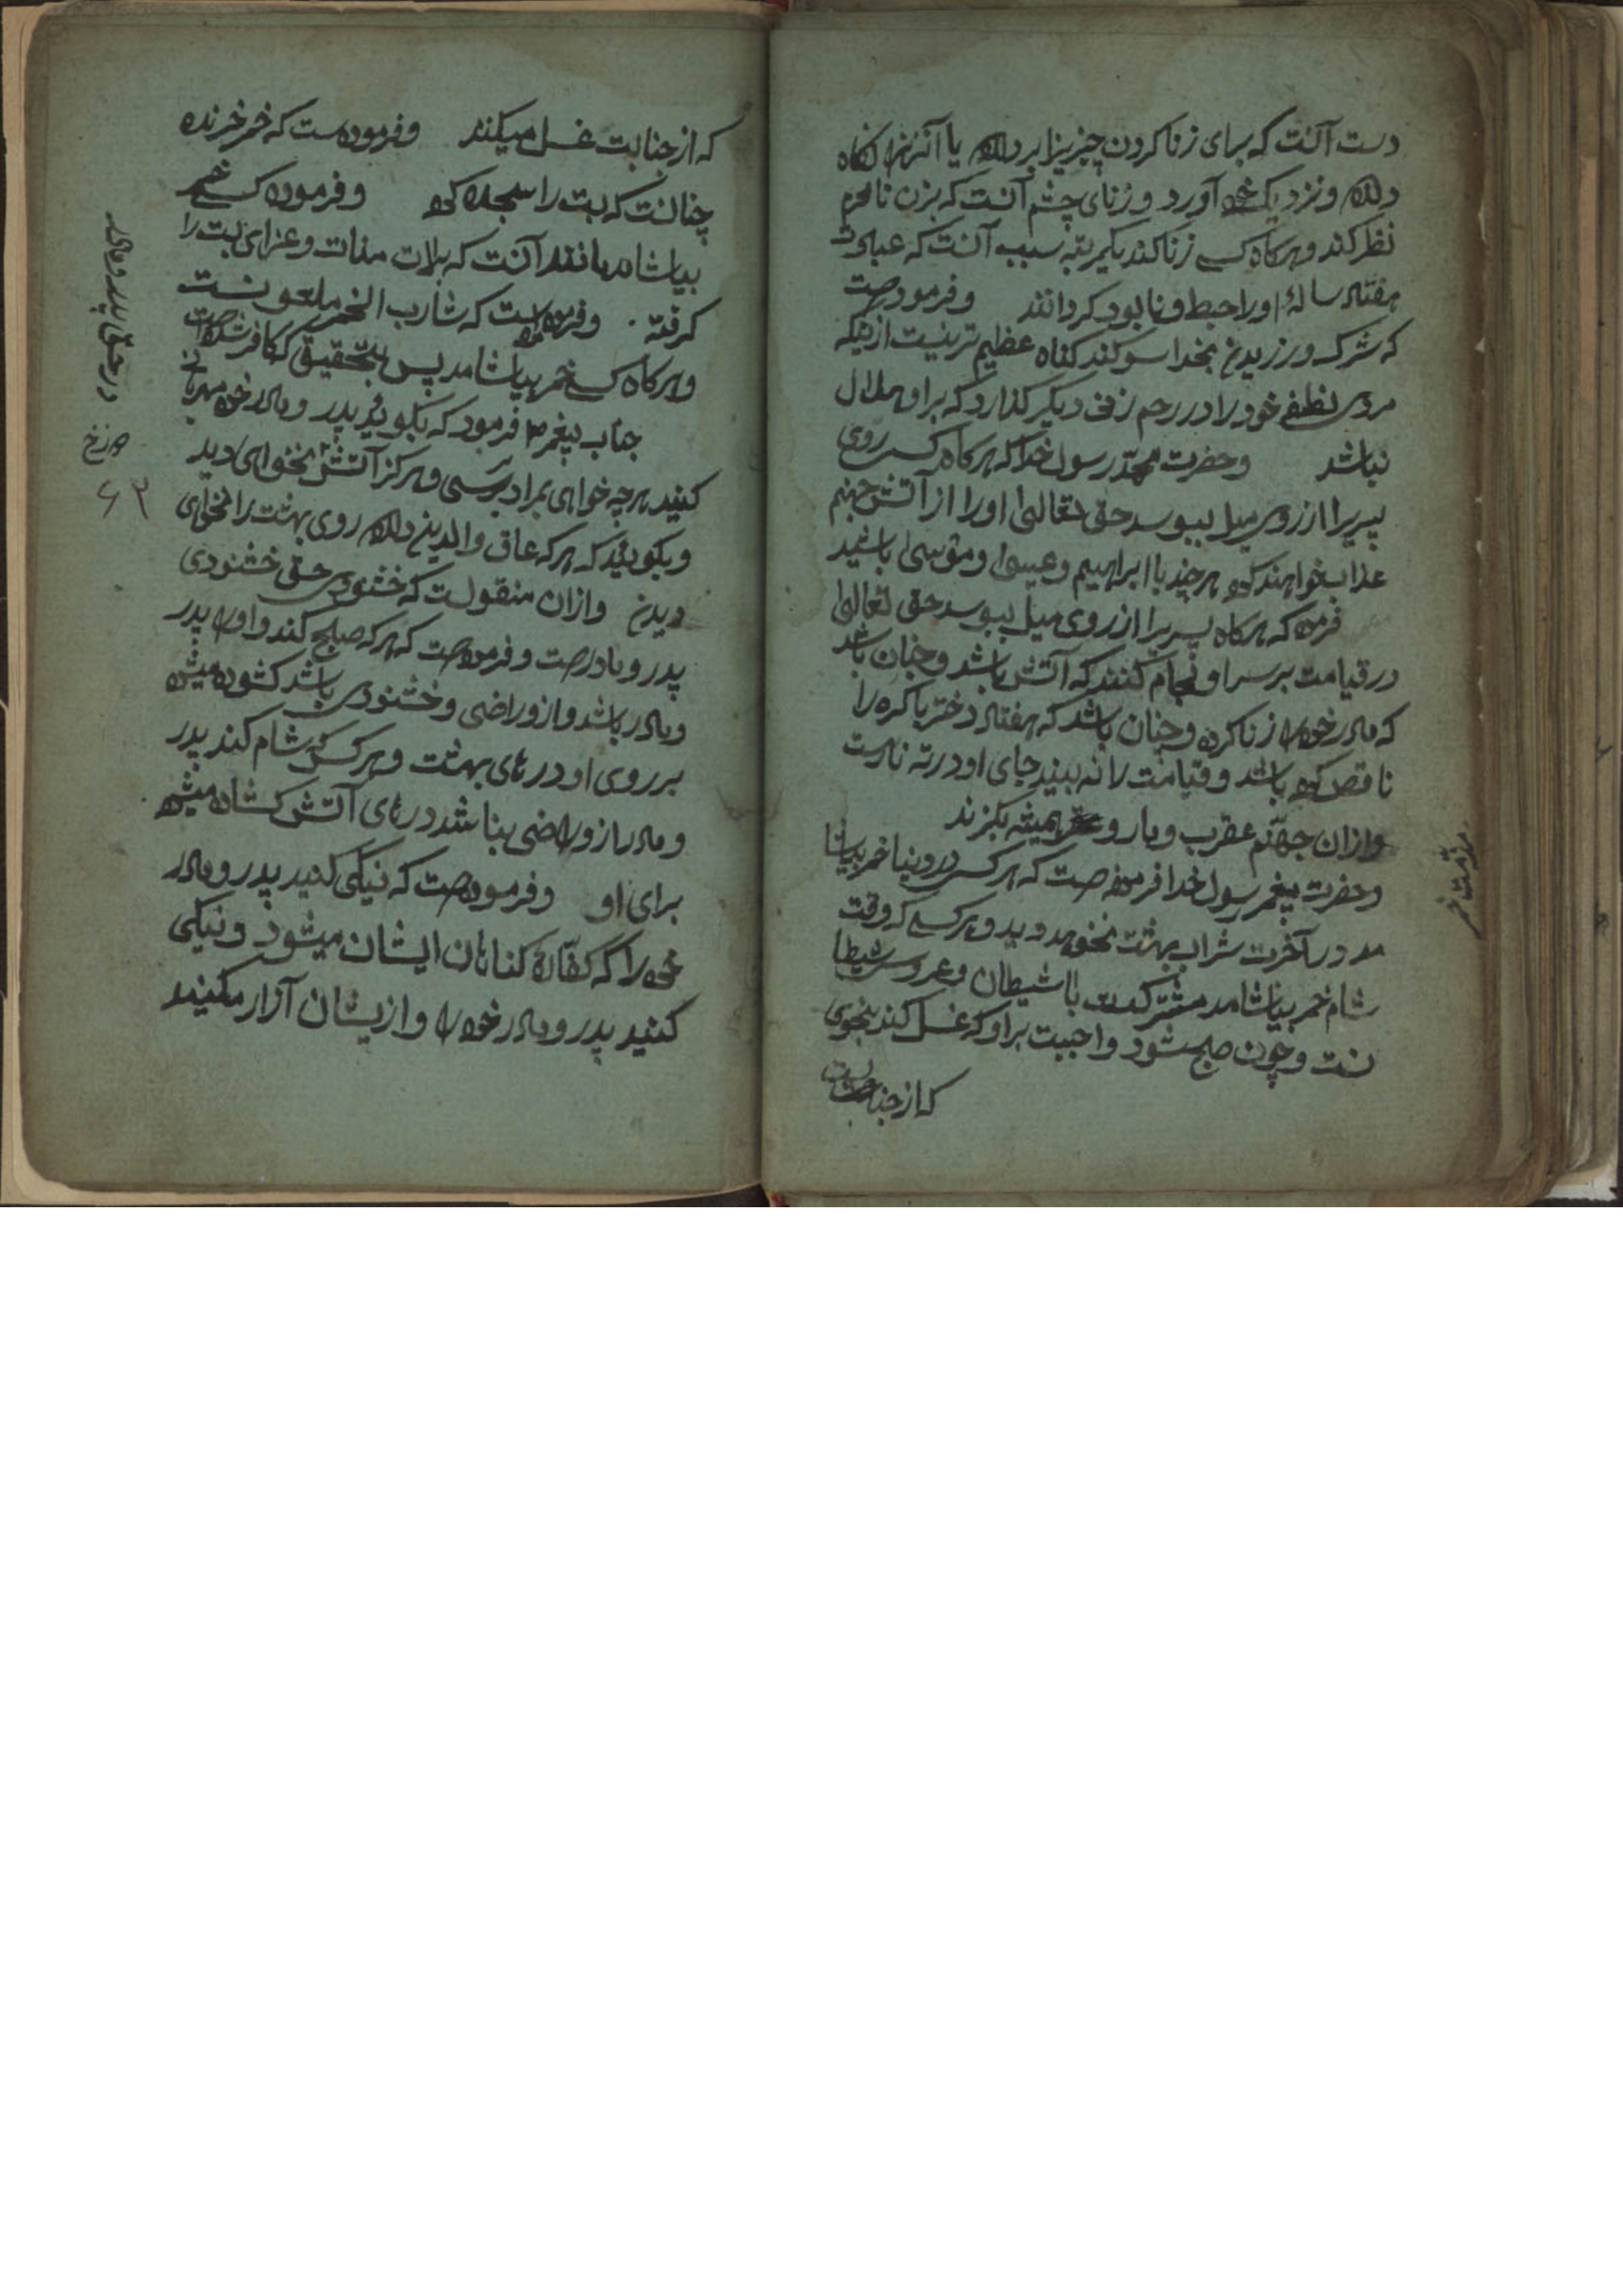 دست آنست که برای زنا کردن چیزیرا بردارد یا آنرا نکاه
دارد ونزدیک خود آورد وزنای چشم آنست که بزن نامحرم
نظر کند وهرکاه کسی زنا کند یکمرتبه سبب آنست که عبادت
هفتاد ساله‌ٔ اورا حبط ونابود کردانند وفرمودست
که شرک ورزیدن بخدا سوکند کناه عظیم ترنیست ازینکه
مردی نطفه خود را در رحم زنی دیکر کذارد که براو حلال
نباشد وحضرت محمّد رسول خدا که هرکاه کسی روی
پسریرا از روی میل ببوسد حق تعالی اورا از آتش جهنم
عذاب خواهند کرد هرچند با ابراهیم وعیسی وموسی باشید
فرمود که هرکاه پسریرا از روی میل ببوسد حق تعالی
در قیامت بر سر او لجام کنند که آتش باشد وچنان باشد
که مادر خود را زنا کرده وچنان باشد که هفتاد دختر باکره را
ناقص کرده باشد وقیامت را نه بیند جای او در ته نارست
وازان جهنّم عقرب ومار و همیشه بکزند
در مذمت خمر
وحضرت پیغمبر رسول خدا فرمودصت که هرکس در دنیا خمر بیاشا
مد در آخرت شراب بهشت نخوهد دید وهرکسی که وقت
شام خمر بیاشامد مشترکست باشیطان وعروس شیطا
نست وچون صبح شود واجبیت براو که غسل کند بنحوی
که از جنابت
که از جنابت غسل میکنند وفرمودست که خمر خرنده
چنانست که بت را سجده کرد وفرموده کسی خمر
بیاشامد مانند آنست که بلات منات وعزای بت را
کرفته . وفرموده است که شارب الخمر ملعونست
وهرکاه کسی خمر بیاشامد پس بتحقیق که کافر شدصت
جناب پیغمبر فرمود که بکوئید پدر ومادر خود مهربانی
کنید هرچه خواهی بمراد برسی وهرکز آتش نخواهی دید
وبکوئید که هرکه عاق والدین دارد روی بهشت را نخواهی
دیدن وازان منقولست که خشنودی حق خشنودی
پدر ومادرصت وفرمودصت که هرکه صلح کند واورا پدر
ومادر باشد وازو راضی وخشنودی باشد کشوده میشود
بر روی او درهای بهشت وهرکس که شام کند پدر
ومادر ازو راضی بناشد درهای آتش کشاده میشود
برای او وفرمودصت که نیکی کنید پدر ومادر
خود را که کفّارهٔ کناهان ایشان میشود ونیکی
کنید پدر ومادر خود را وازیشان آزار مکنید
در حق پدر ومادر
۶۲